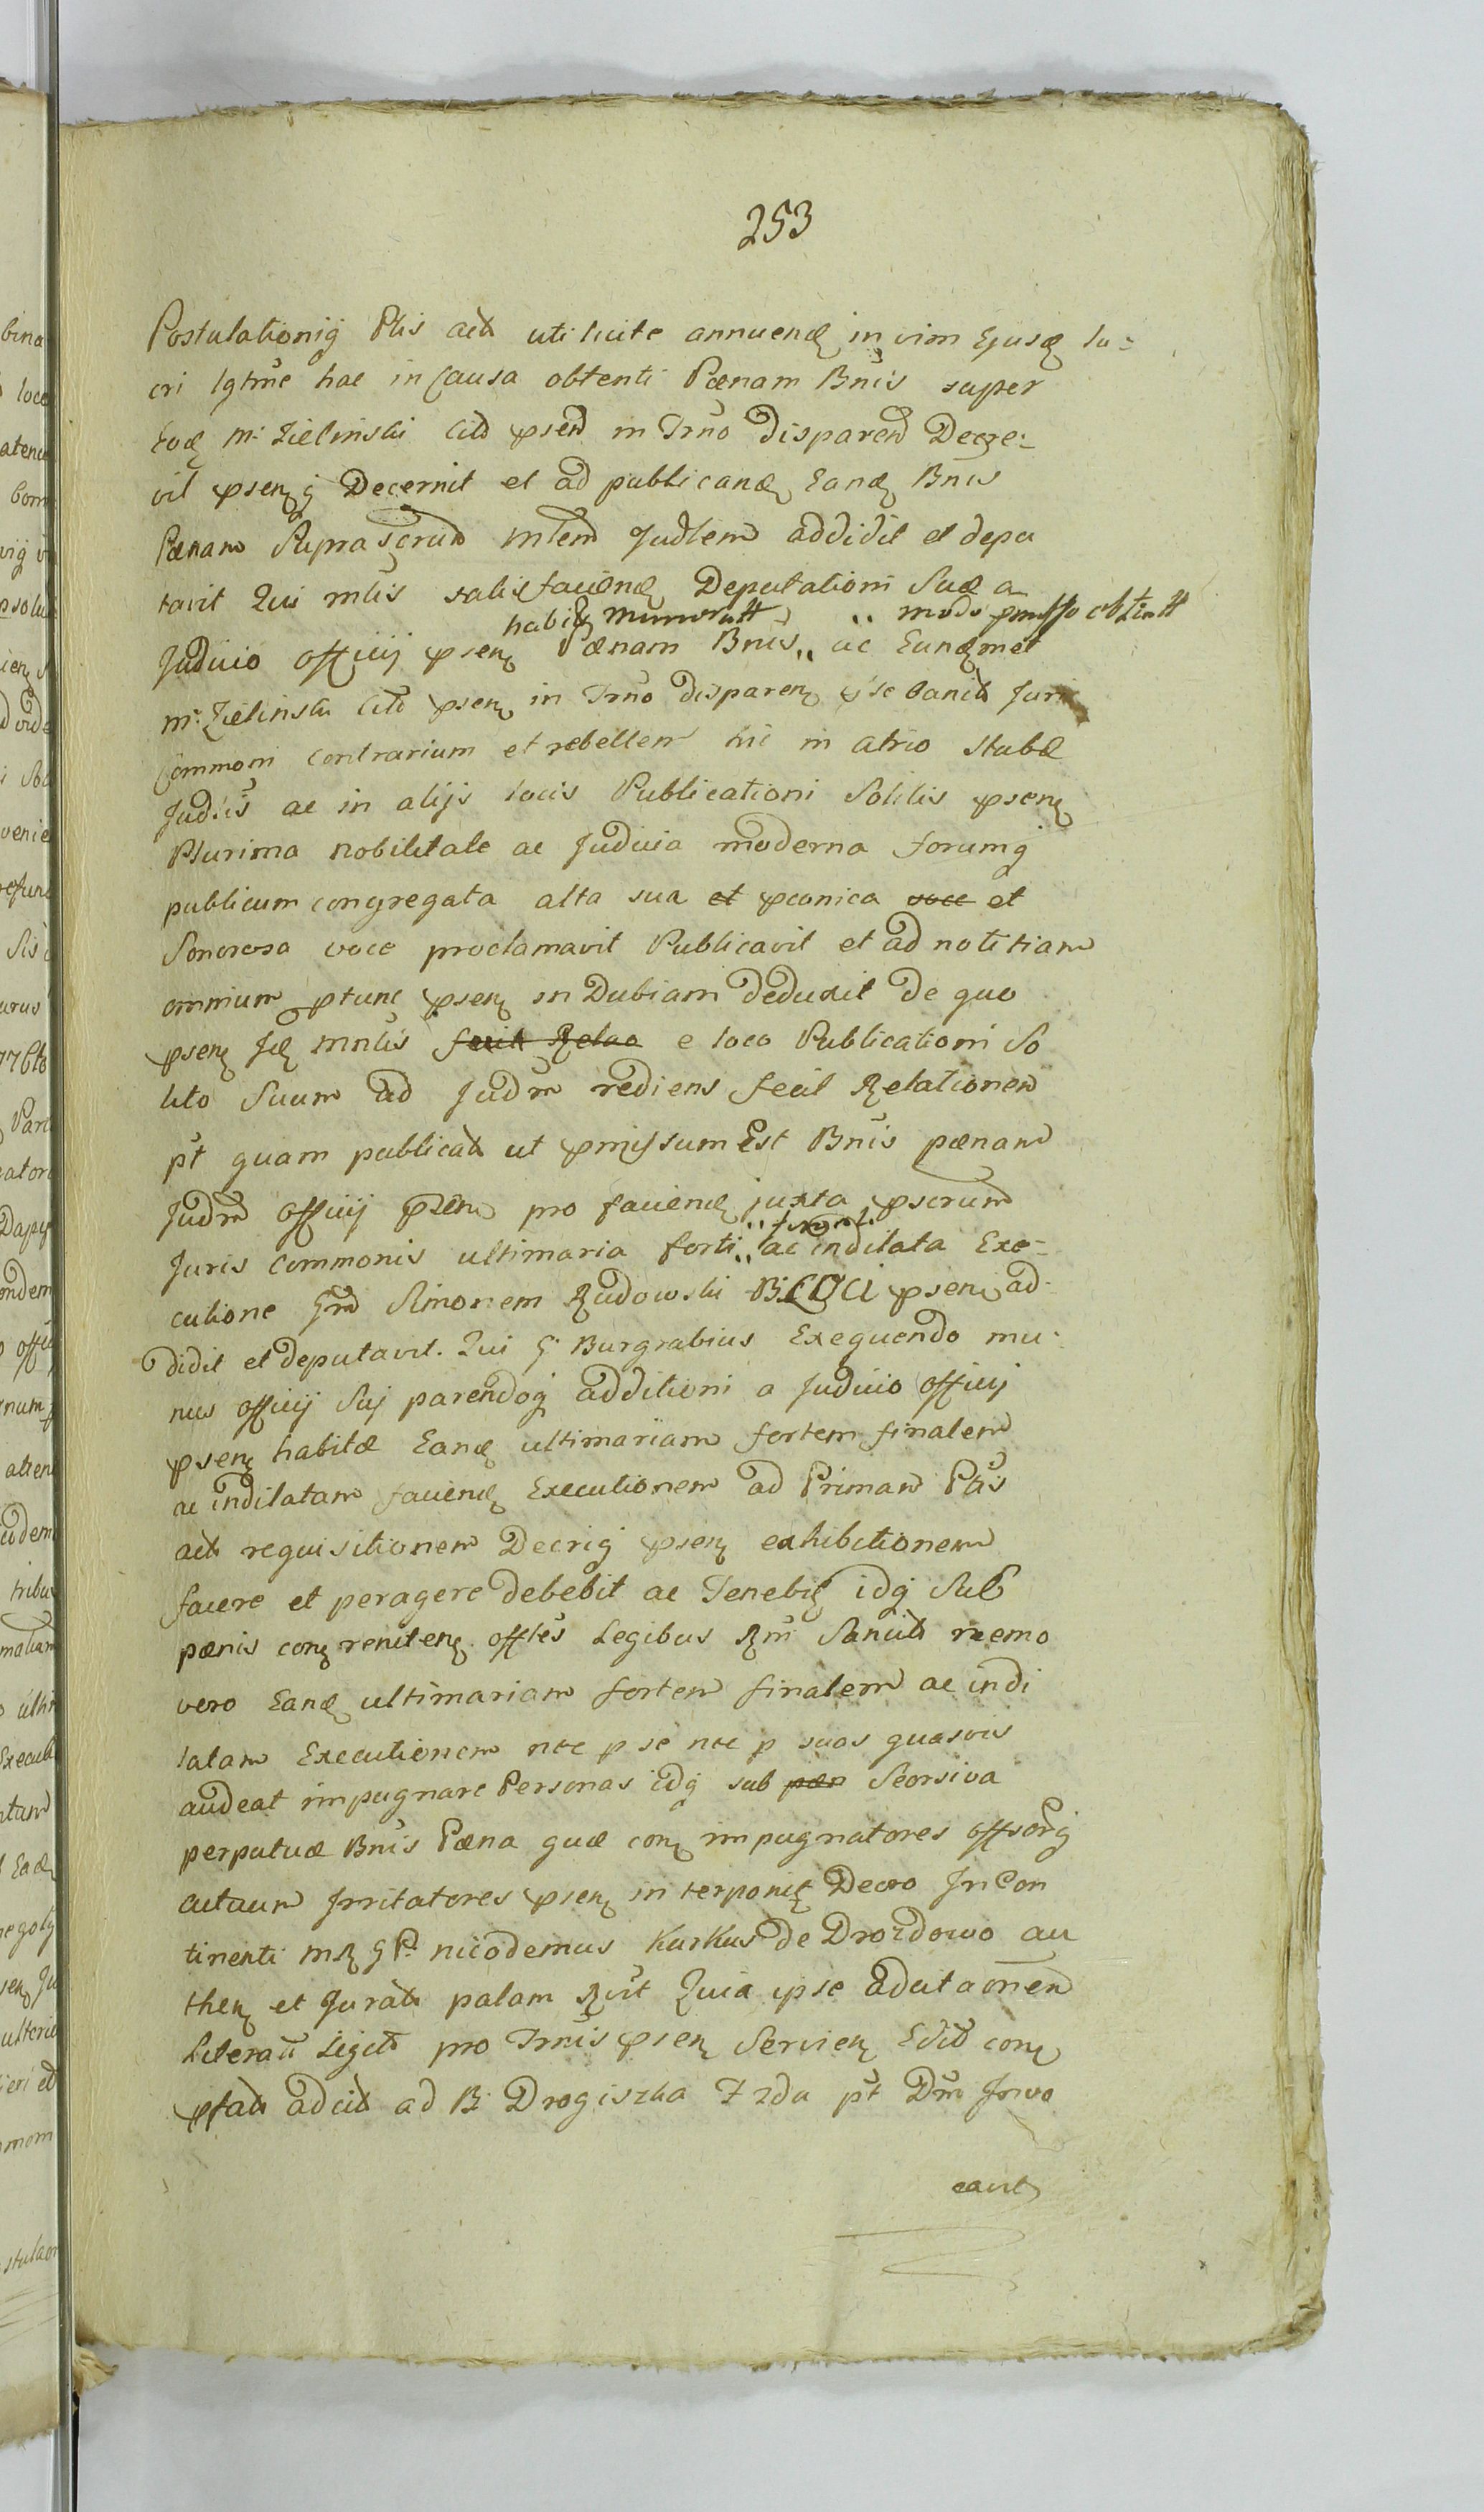 253
Postulationiq Ptis actt uti licite annuend in vim Ejusd lu-
cri Igtrne hac in Causa obtenti Pænam Bnis super
Eod M. Zielinski Citd psend in Trno Disparend Decre-
vit psenq Decernit et ad publicand Eand Bnis
Pænam Suprascrtam Mlem Judlem addidit et depu
tavit Qui mlis satisfaciend Deputationi Suæ a
habitt Mmoratt modo pmisso obtentt
Judicio officij psen Pænam Bnis ac Eundmet
M. Zielinski Citd psen in Trno disparen pse banitt Juri
Commoni contrarium et rebellem hic in atrio Stubæ
Judlis ac in alijs locis Publicationi Solitis psen
Plurima nobilitate ac Judicia moderna forumq
publicum congregata alta sua et pconica voce et
Sonorosa voce proclamavit Publicavit et ad notitiam
omnium ptunc psen in Dubiam deduxit de quo
psen Id Mnlis fecit Relao e loco Publicationi So
lito Suum ad Judm rediens fecit Relationem
pt quam publicatt ut pmissum Est Bnis pænam
Judm officij psen pro faciend juxta pscrum
Juris Commonis ultimaria forti ac indilata Exe-
cutione Gnd Simonem Rudowski psen ad-
didit et deputavit. Qui G. Burgrabius Exequendo mu-
nus officij Sui parendoq additioni a Judicio officij
psen habitæ Eand ultimariam fortem finalem
ac indilatam faciend Executionem ad Primam Ptis
actt requisitionem Decriq psen exhibitionem
facere et peragere debebit ac Tenebit idq Sub
pænis con reniten offles Legibus Rni Sancitt nemo
vero Eand ultimariam fortem finalem ac indi
latam Executionem nec p se nec p suas quasvis
audeat impugnare Personas idq sub pæn Seorsiva
perpetuæ Bnis Pæna quæ con impugnatores offsorq
actaum Irritatores psen interponit Decro In Con
tinenti MR G P. Nicodemus Kurkus de Drozdowo au
then et Juratt palam Rvit Quia ipse ad citaonem
Literatt Legitt pro Trnis psen Servien Edit con
pfatt ad citt ad B. Drogiszka Trda pt Dm Invo
cavit